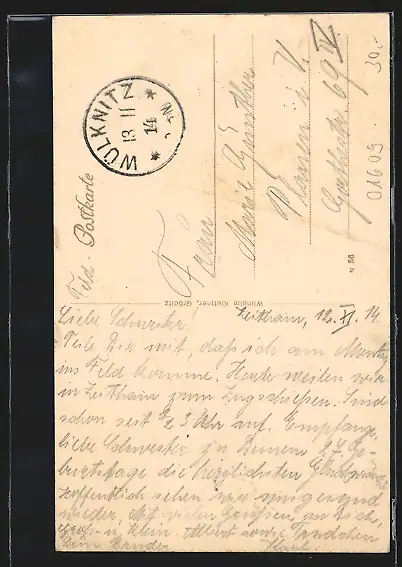 Feld - Postkarte
WÜLKNITZ
13 11
14
Frau
Marie Günther
Plauen i. V.
Goethestr. 69 IV.
30.-
01609
N 56
Wilhelm Klettner, Gröditz
Zeithain, 12. XI. 14.
Liebe Schwester.
Teile Dir mit, daß ich am Montag
ins Feld komme. Heute weilen wir
in Zeithain zum Zugschießen. Sind
schon seit ½ 3 Uhr auf. Empfange
liebe Schwester zu Deinem 27. Ge-
burtstage die herzlichsten Glückwünsche
Hoffentlich sehen wir uns gesund
wieder. Mit vielen Grüßen an Dich,
Groß u. Klein Albert sowie
Dein Bruder